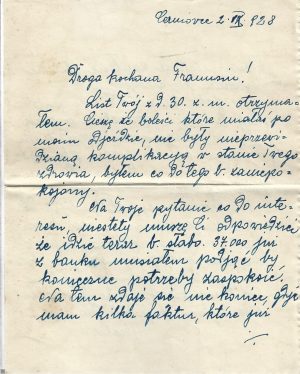 Czerniowce 2 IX 928
Droga kochana Franusiu!
List Twój z d. 30. z. m. otrzyma-
łem. Cieszę że boleści które miałaś po
moim odjeździe, nie były nieprzewi-
dzianą komplikacją w stanie Twego
zdrowia, byłem co do tego b. zaniepo-
kojony.
Na Twoje pytanie co do inte-
resu, niestety muszę Ci odpowiedzieć
że idzie teraz b. słabo. 37.000 już
z banku musiałem podjąć by
konieczne potrzeby zaspokoić.
Na tem zdaje się nie koniec, gdyż
mam kilka faktur, które już